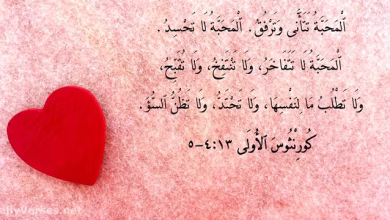 ٱلْمَحَبَّةُ تَتَأَنَّى وَتَرْفُقُ. ٱلْمَحَبَّةُ لَا تَحْسِدُ.
ٱلْمَحَبَّةُ لَا تَتَفَاخَرُ، وَلَا تَنْتَفِخُ، وَلَا تُقَبِّحُ،
وَلَا تَطْلُبُ مَا لِنَفْسِهَا، وَلَا تَحْتَدُّ، وَلَا تَظُنُّ ٱلسُّؤَ.
كُورِنْثُوسَ ٱلْأُولَى ١٣:٤-٥